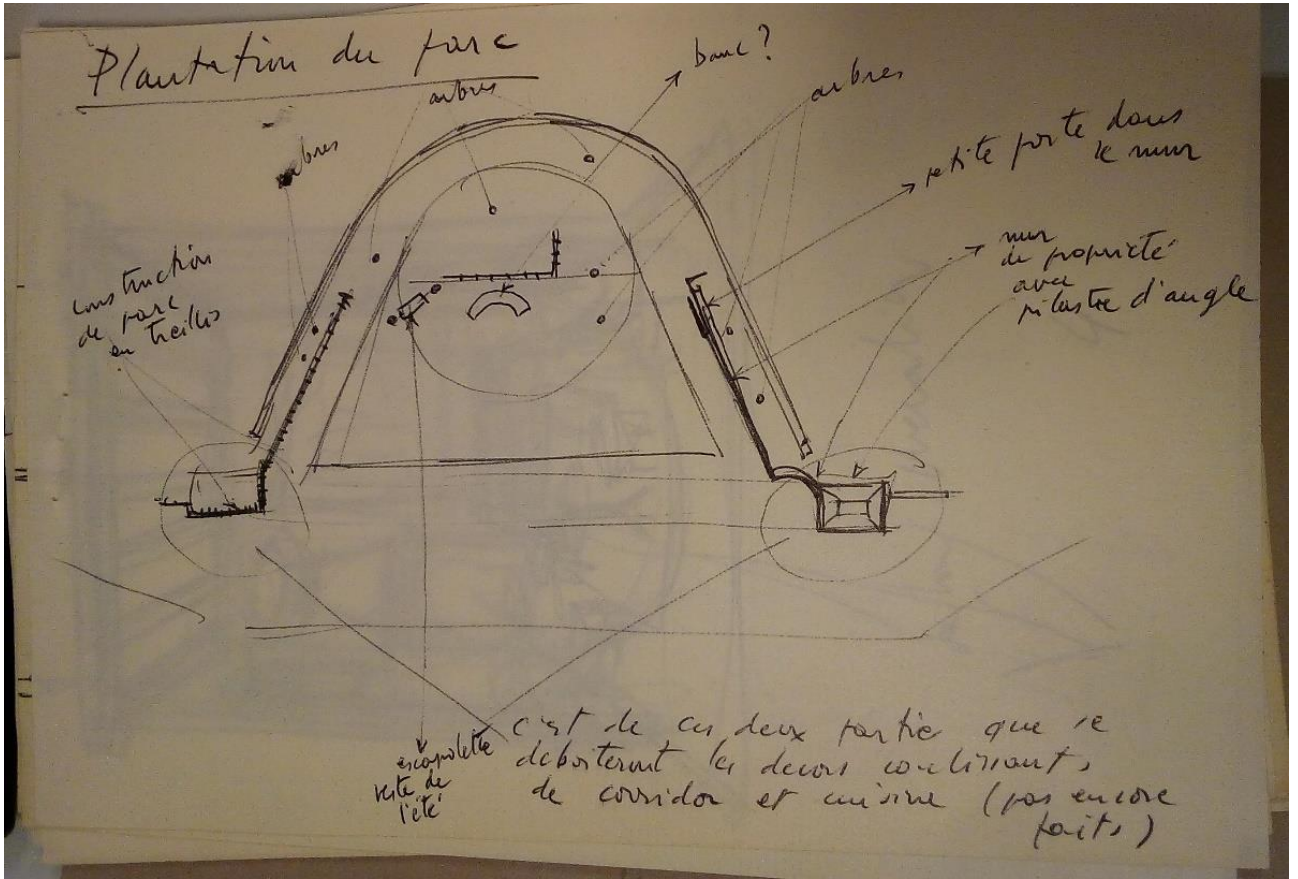 Plantation du parc
arbres
banc?
arbres
arbres
petite porte dans
le mur
mur
de propriété
avec
pilastre d'angle
construction
de parc
en treillis
escarpolette
reste de
l'été
c'est de ces deux partie que se
deboiteront les decors coulissants,
de corridor et cuisine (pas encore
faits)